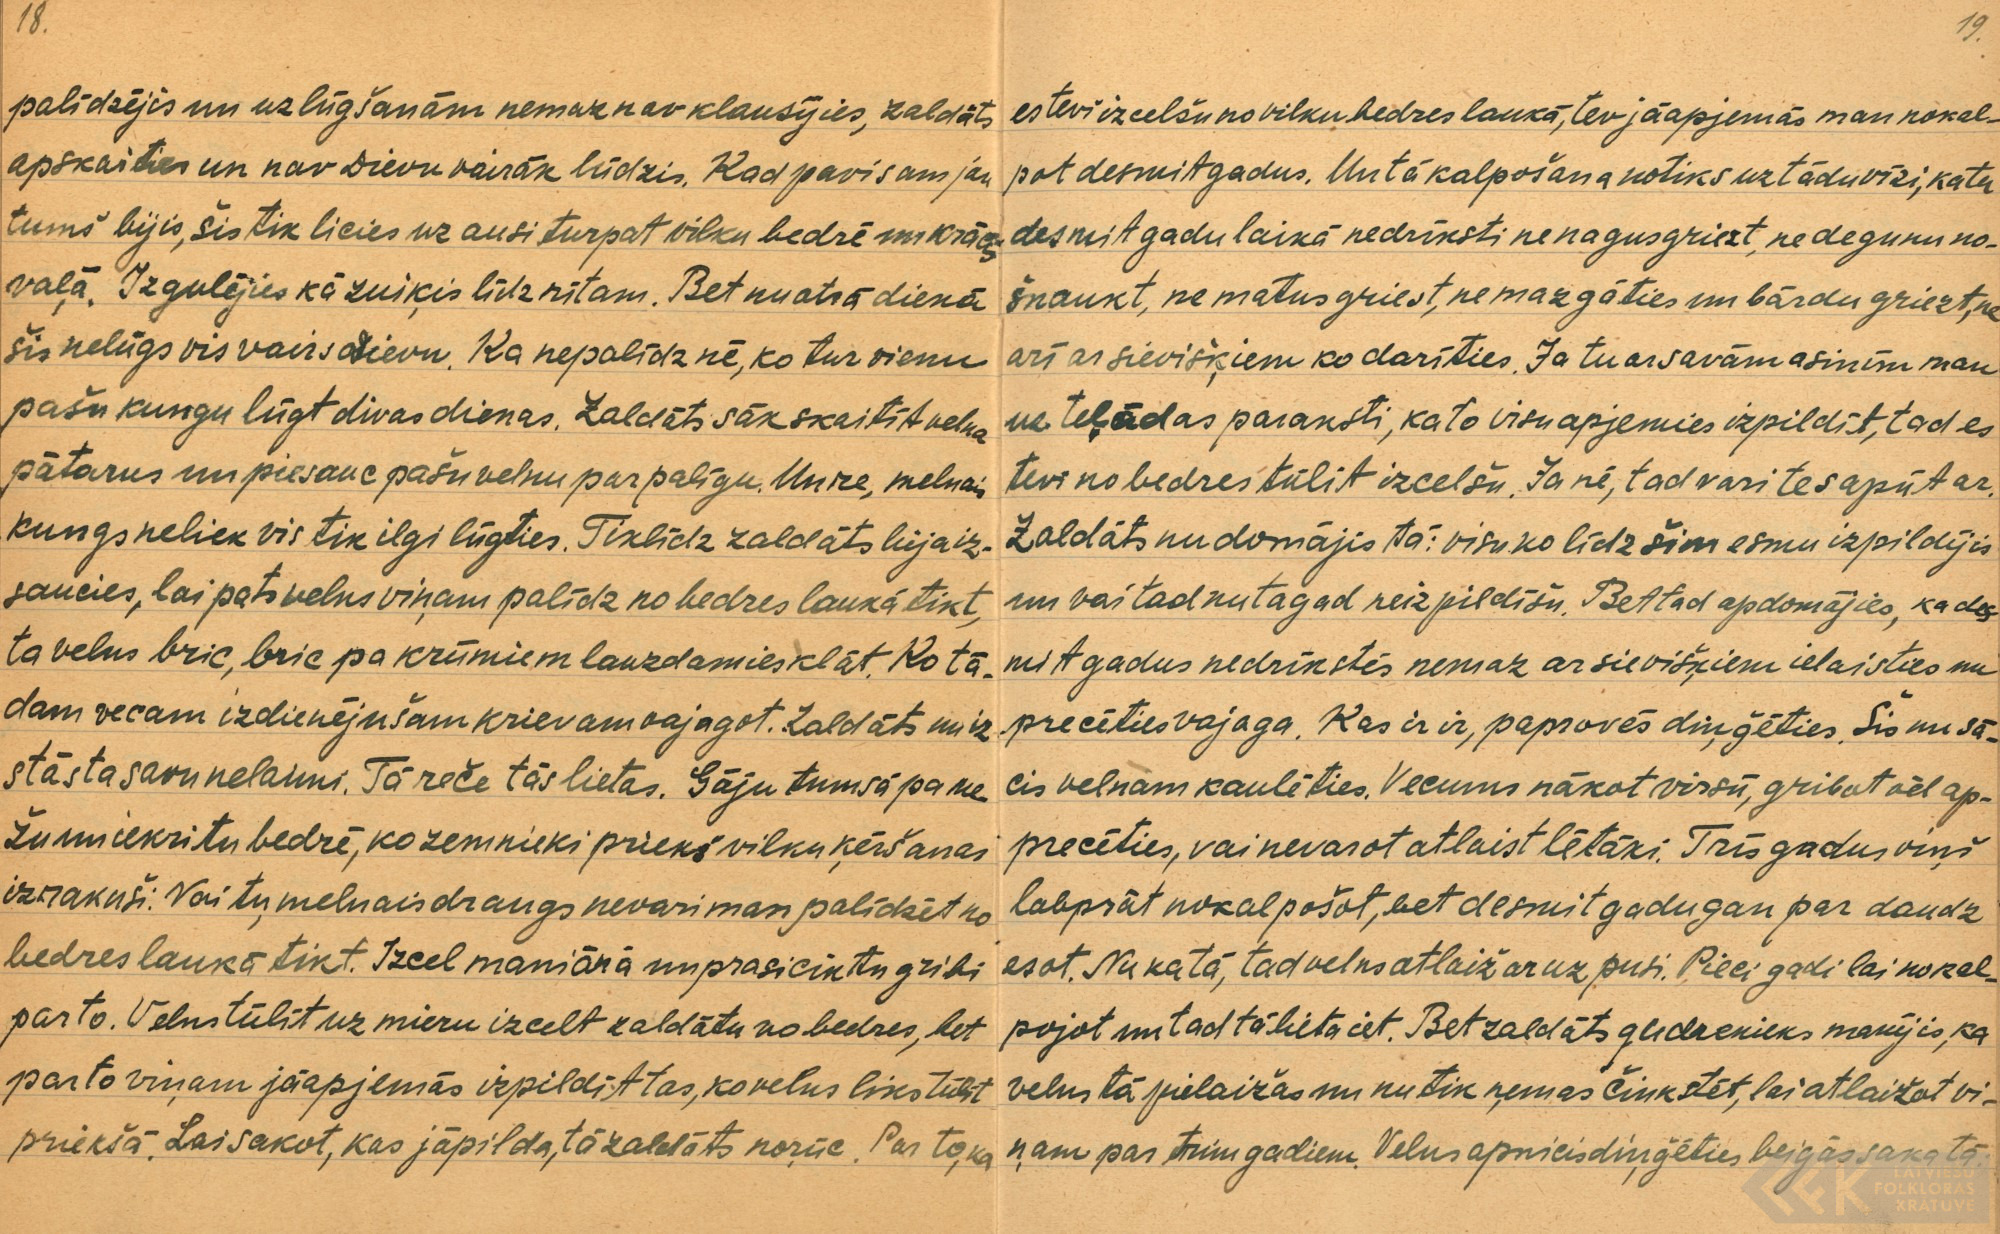 18.
palīdzējis un uz lūgšanām nemaz nav klausījies, zaldāts
apskaities un nav Dievu vairāk lūdzis. Kad pavisam jau
tumš bijis, šis tik licies uz ausi turpat vilku bedrē un krāc
vaļā. Izgulējies kā zuiķis līdz rītam. Bet nu otrā dienā
šis nelūgs vis vairs Dievu. Ka nepalīdz nē, ko tur vienu
pašu kungu lūgt divas dienas. Zaldāts sāk skaitīt velna
pātarus un piesauc pašu velnu par palīgu. Un re, melnais
kungs neliek vis tik ilgi lūgties. Tiklīdz zaldāts bija iz-
saucies, lai pats velns viņam palīdz no bedres laukā tikt,
ta velns bric, bric pa krūmiem lauzdamies klāt. Ko tā-
dam vecam izdienējušam krievam vajagot. Zaldāts nu iz
stāsta savu nelaimi. Tā reče tās lietas. Gāju tumsā pa me
žu un iekritu bedrē, ko zemnieki priekš vilku ķēršanas
izrakuši. Vai tu, melnais draugs nevari man palīdzēt no
bedres laukā tikt. Izcel mani ārā un prasi cik tu gribi
par to. Velns tūlīt uz mieru izcelt zaldātu no bedres, bet
par to viņam jāapjemās izpildīt tas, ko velns liks tūlīt
priekšā. Lai sakot, kas jāpilda, tā zaldāts noņūc. Par to, ka
19.
es tevi izcelšu no vilku bedres laukā, tev jāapjemās man nokal-
pot desmit gadus. Un tā kalpošana notiks uz tādu vīzi, ka tu
desmit gadu laikā nedrīksti ne nagus griezt, ne degunu no-
šnaukt, ne matus griest, ne mazgāties un bārdu griezt, ne
arī ar sievišķiem ko darīties. Ja tu ar savām asinīm man
uz teļādas paraksti, ka to visu apjemies izpildīt, tad es
tevi no bedres tūlīt izcelšu. Ja nē, tad vari te sapūt ar.
Zaldāts nu domājis tā: visu ko līdz šim esmu izpildījis
un vai tad nu tagad neizpildīšu. Bet tad apdomājies, ka des
mit gadus nedrīkstēs nemaz ar sievišķiem ielaisties un
precēties vajaga. Kas ir ir, paprovēs diņģēties. Šis nu sā-
cis velnam kaulēties. Vecums nākot virsū, gribot vēl ap-
precēties, vai nevarot atlaist lētāki. Trīs gadus viņš
labprāt nokalpošot, bet desmit gadu gan par daudz
esot. Nu ka tā, tad velns atlaiž ar uz pusi. Pieci gadi lai nokal-
pojot un tad tā lieta iet. Bet zaldāts gudrenieks manījis, ka
velns tā pielaižas un nu tik ņemas činkstēt, lai atlaižot vi-
ņam par trim gadiem. Velns apnicis diņģēties beigās saka tā:
LATVIEŠU
FOLKLORAS
KRATUVE